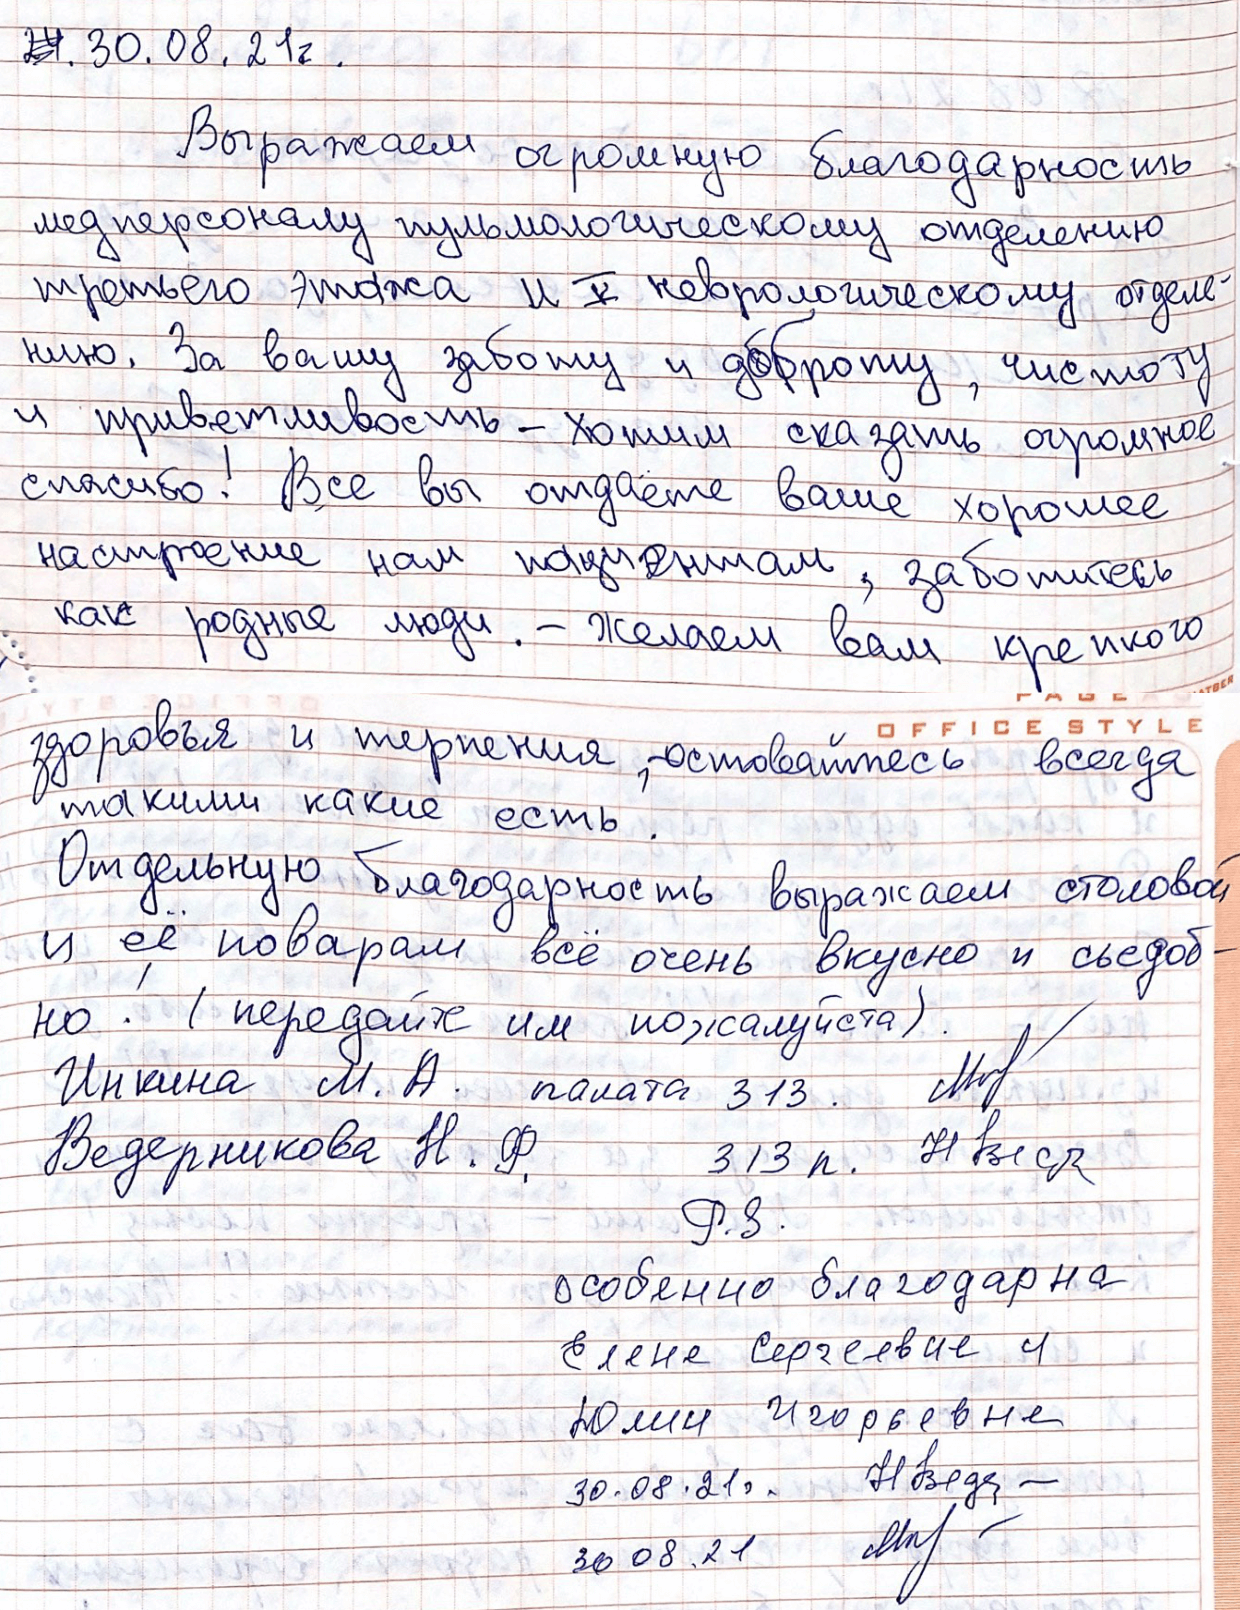 30.08.21г.
Выражаем огромную благодарность
медперсоналу пульмологическому отделению
третьего этажа и V неврологическому отделе-
нию. За вашу заботу и доброту, чистоту
и приветливость – хотим сказать огромное
спасибо! Все вы отдаёте ваше хорошее
настроение нам пациентам, заботитесь
как родные люди. – Желаем вам крепкого
PAGE
OFFICE STYLE
здоровья и терпения, – оставайтесь всегда
такими какие есть.
Отдельную благодарность выражаем столовой
и её поварам всё очень вкусно и сьедоб-
но! (передайте им пожалуйста).
Инкина М.А. палата 313.
Ведерникова Н.Ф. 313 п. НВед
P.S.
особенно благодарна
Елене Сергеевне и
Юлии Игорьевне
30.08.21г. НВед
30 08.21